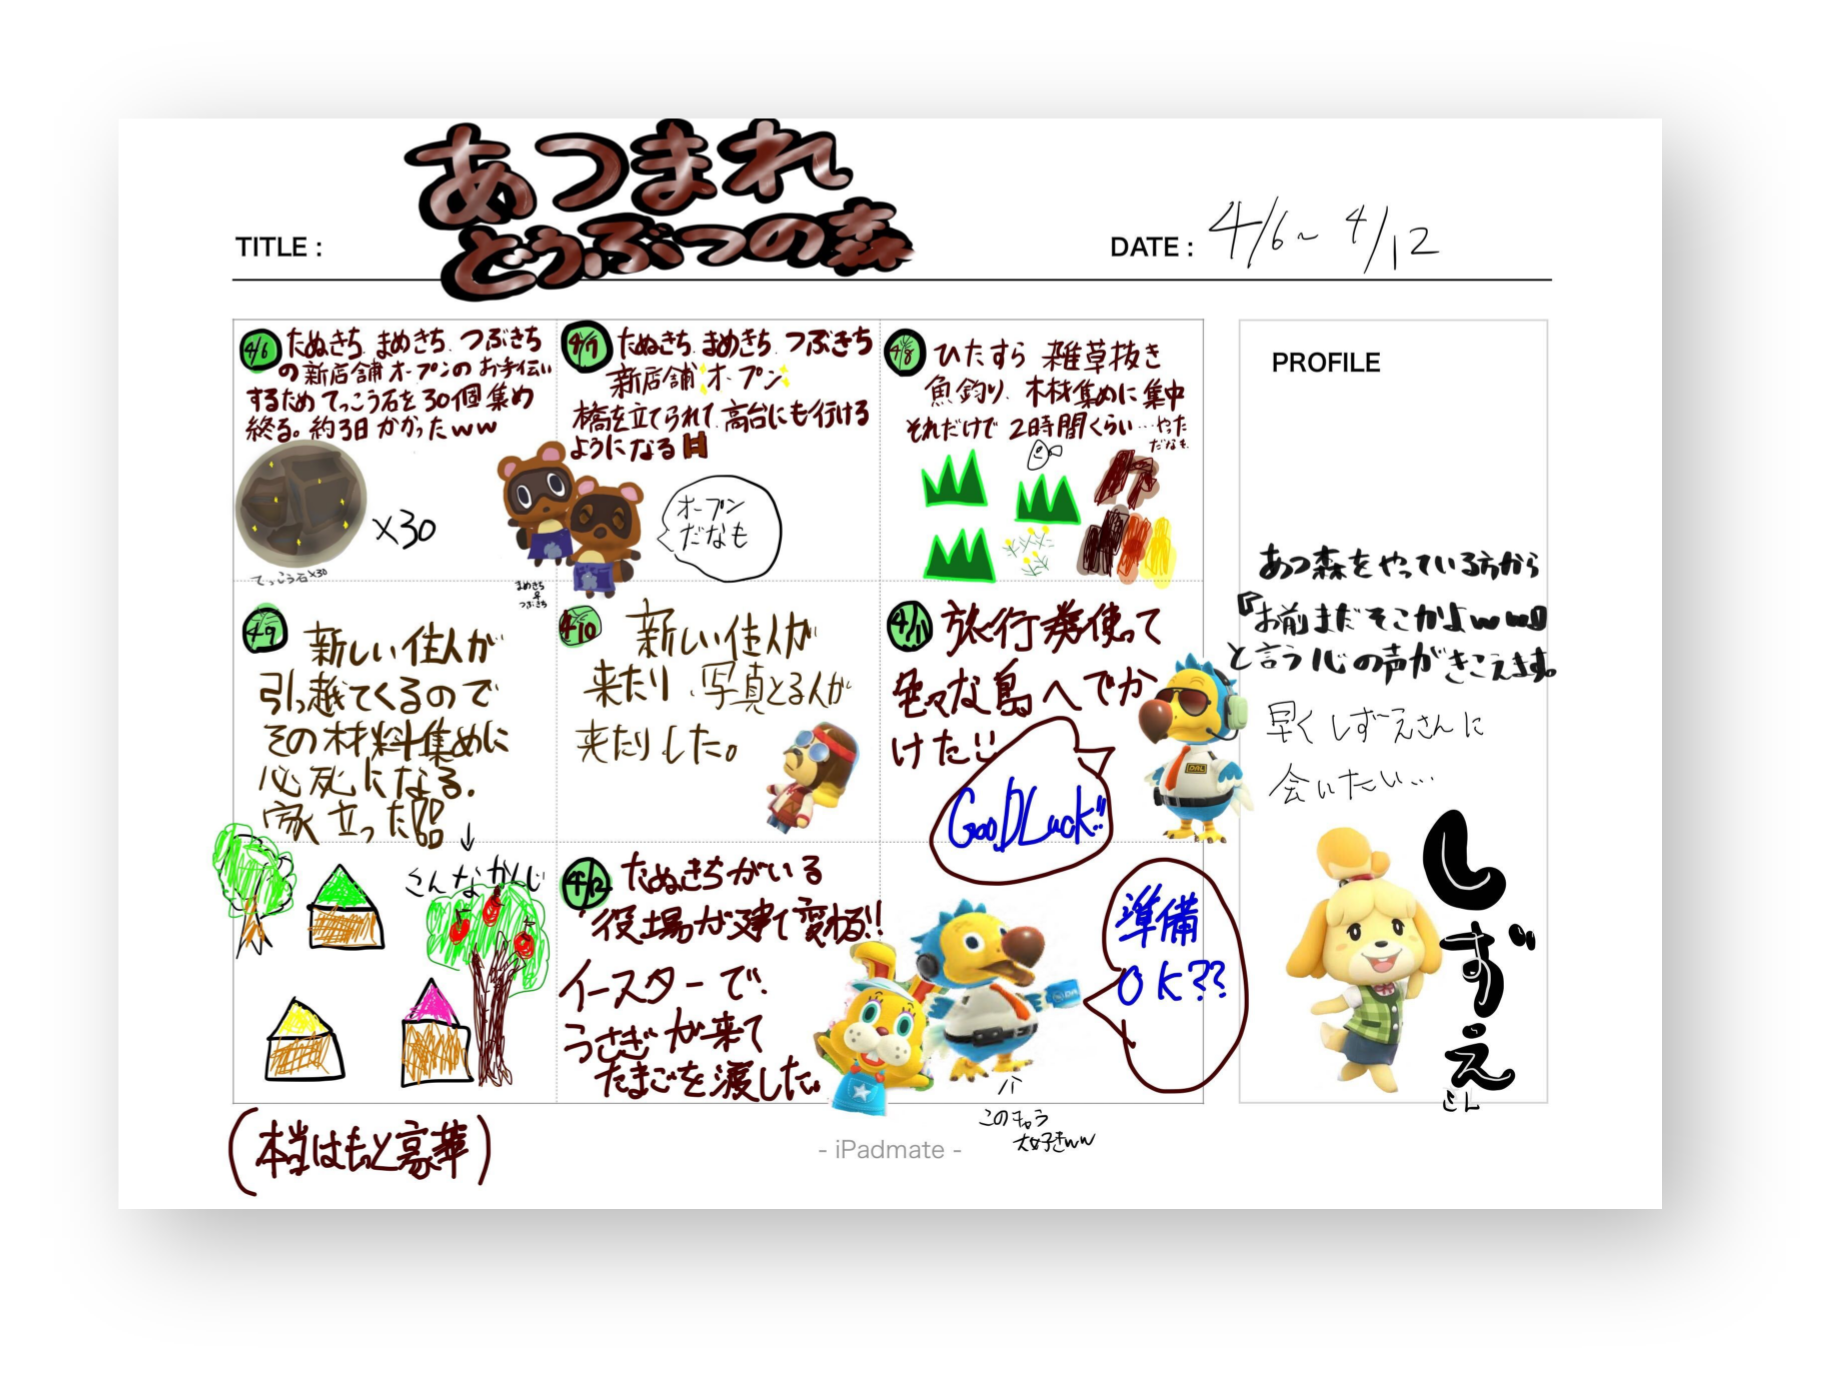 あつまれ
どうぶつの森
TITLE :
DATE : 4/6~4/12
4/6 たぬきち まめきち、つぶきち
の新店舗オープンのお手伝い
するためてっこう石を30個集め
終る。約3日かかったww
×30
てっこう石×30
4/7 たぬきち まめきち つぶきち
新店舗オープン
橋を立てられて、高台にも行ける
ようになる
オープン
だなも
まめきち
&
つぶきち
4/8 ひたすら 雑草抜き
魚釣り、木材集めに集中
それだけで 2時間くらい…やった
だなも
4/9 新しい住人が
引っ越てくるので
その材料集めに
必死になる.
家立った
↓
こんなかんじ
(本当はもっと豪華)
4/10 新しい住人が
来たり、写真とる人が
来たりした。
4/11 旅行券使って
色々な島へでか
けた!!
GooD Luck!!
4/12 たぬきちがいる
役場が建て変わる!!
イースターで.
うさぎが来て
たまごを渡した。
準備
OK??
このキャラ
大好きww
- iPadmate -
PROFILE
あつ森をやっている方から
『お前まだそこかよwww』
と言う心の声がきこえます。
早くしずえさんに
会いたい…
しずえ
さん